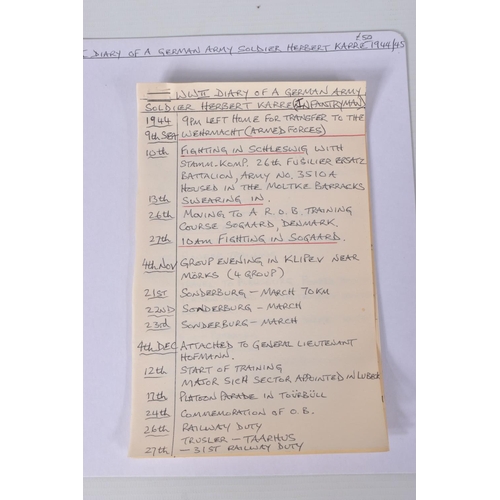 £50
II DIARY OF A GERMAN ARMY SOLDIER HERBERT KARRE 1944/45
WWII DIARY OF A GERMAN ARMY
SOLDIER HERBERT KARRE (INFANTRYMAN)
1944 9PM LEFT HOME FOR TRANSFER TO THE
9th SEPT WEHRMACHT (ARMED FORCES)
10th FIGHTING IN SCHLESWIG WITH
STAMM. KOMP. 26th FUSILIER ERSATZ
BATTALION, ARMY NO. 3510A
HOUSED IN THE MOLTKE BARRACKS
13th SWEARING IN.
26th MOVING TO A R.O.B. TRAINING
COURSE SOGAARD, DENMARK.
27th 10AM FIGHTING IN SOGAARD.
4th NOV GROUP EVENING IN KLIPEV NEAR
MÖRKS (4 GROUP)
21ST SONDERBURG - MARCH 70KM
22ND SONDERBURG - MARCH
23rd SONDERBURG - MARCH
4th DEC ATTACHED TO GENERAL LIEUTENANT
HOFMANN.
12th START OF TRAINING
MAJOR SICH SECTOR APPOINTED IN LUBECK
17th PLATOON PARADE IN TOÜRBÜLL
24th COMMEMORATION OF O.B.
26th RAILWAY DUTY
TRUSLER - TAARHUS
27th - 31ST RAILWAY DUTY